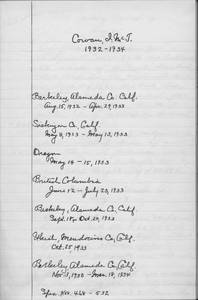 Cowan, I. McT.
1932-1934
Berkeley, Alameda Co. Calif.
Aug. 15, 1932 - Apr. 29, 1933
Siskiyou Co. Calif.
May 9, 1933 - May 13, 1933
Oregon
May 14-15, 1933
British Columbia
June 12 - July 23, 1933
Berkeley, Alameda Co. Calif.
Sept. 18 - Oct. 24, 1933
Ukiah, Mendocino Co. Calif.
Oct. 25 1933
Berkeley Alameda Co. Calif.
Nov. 5, 1933 - Mar. 18, 1934
Spec. Nos. 464 - 532